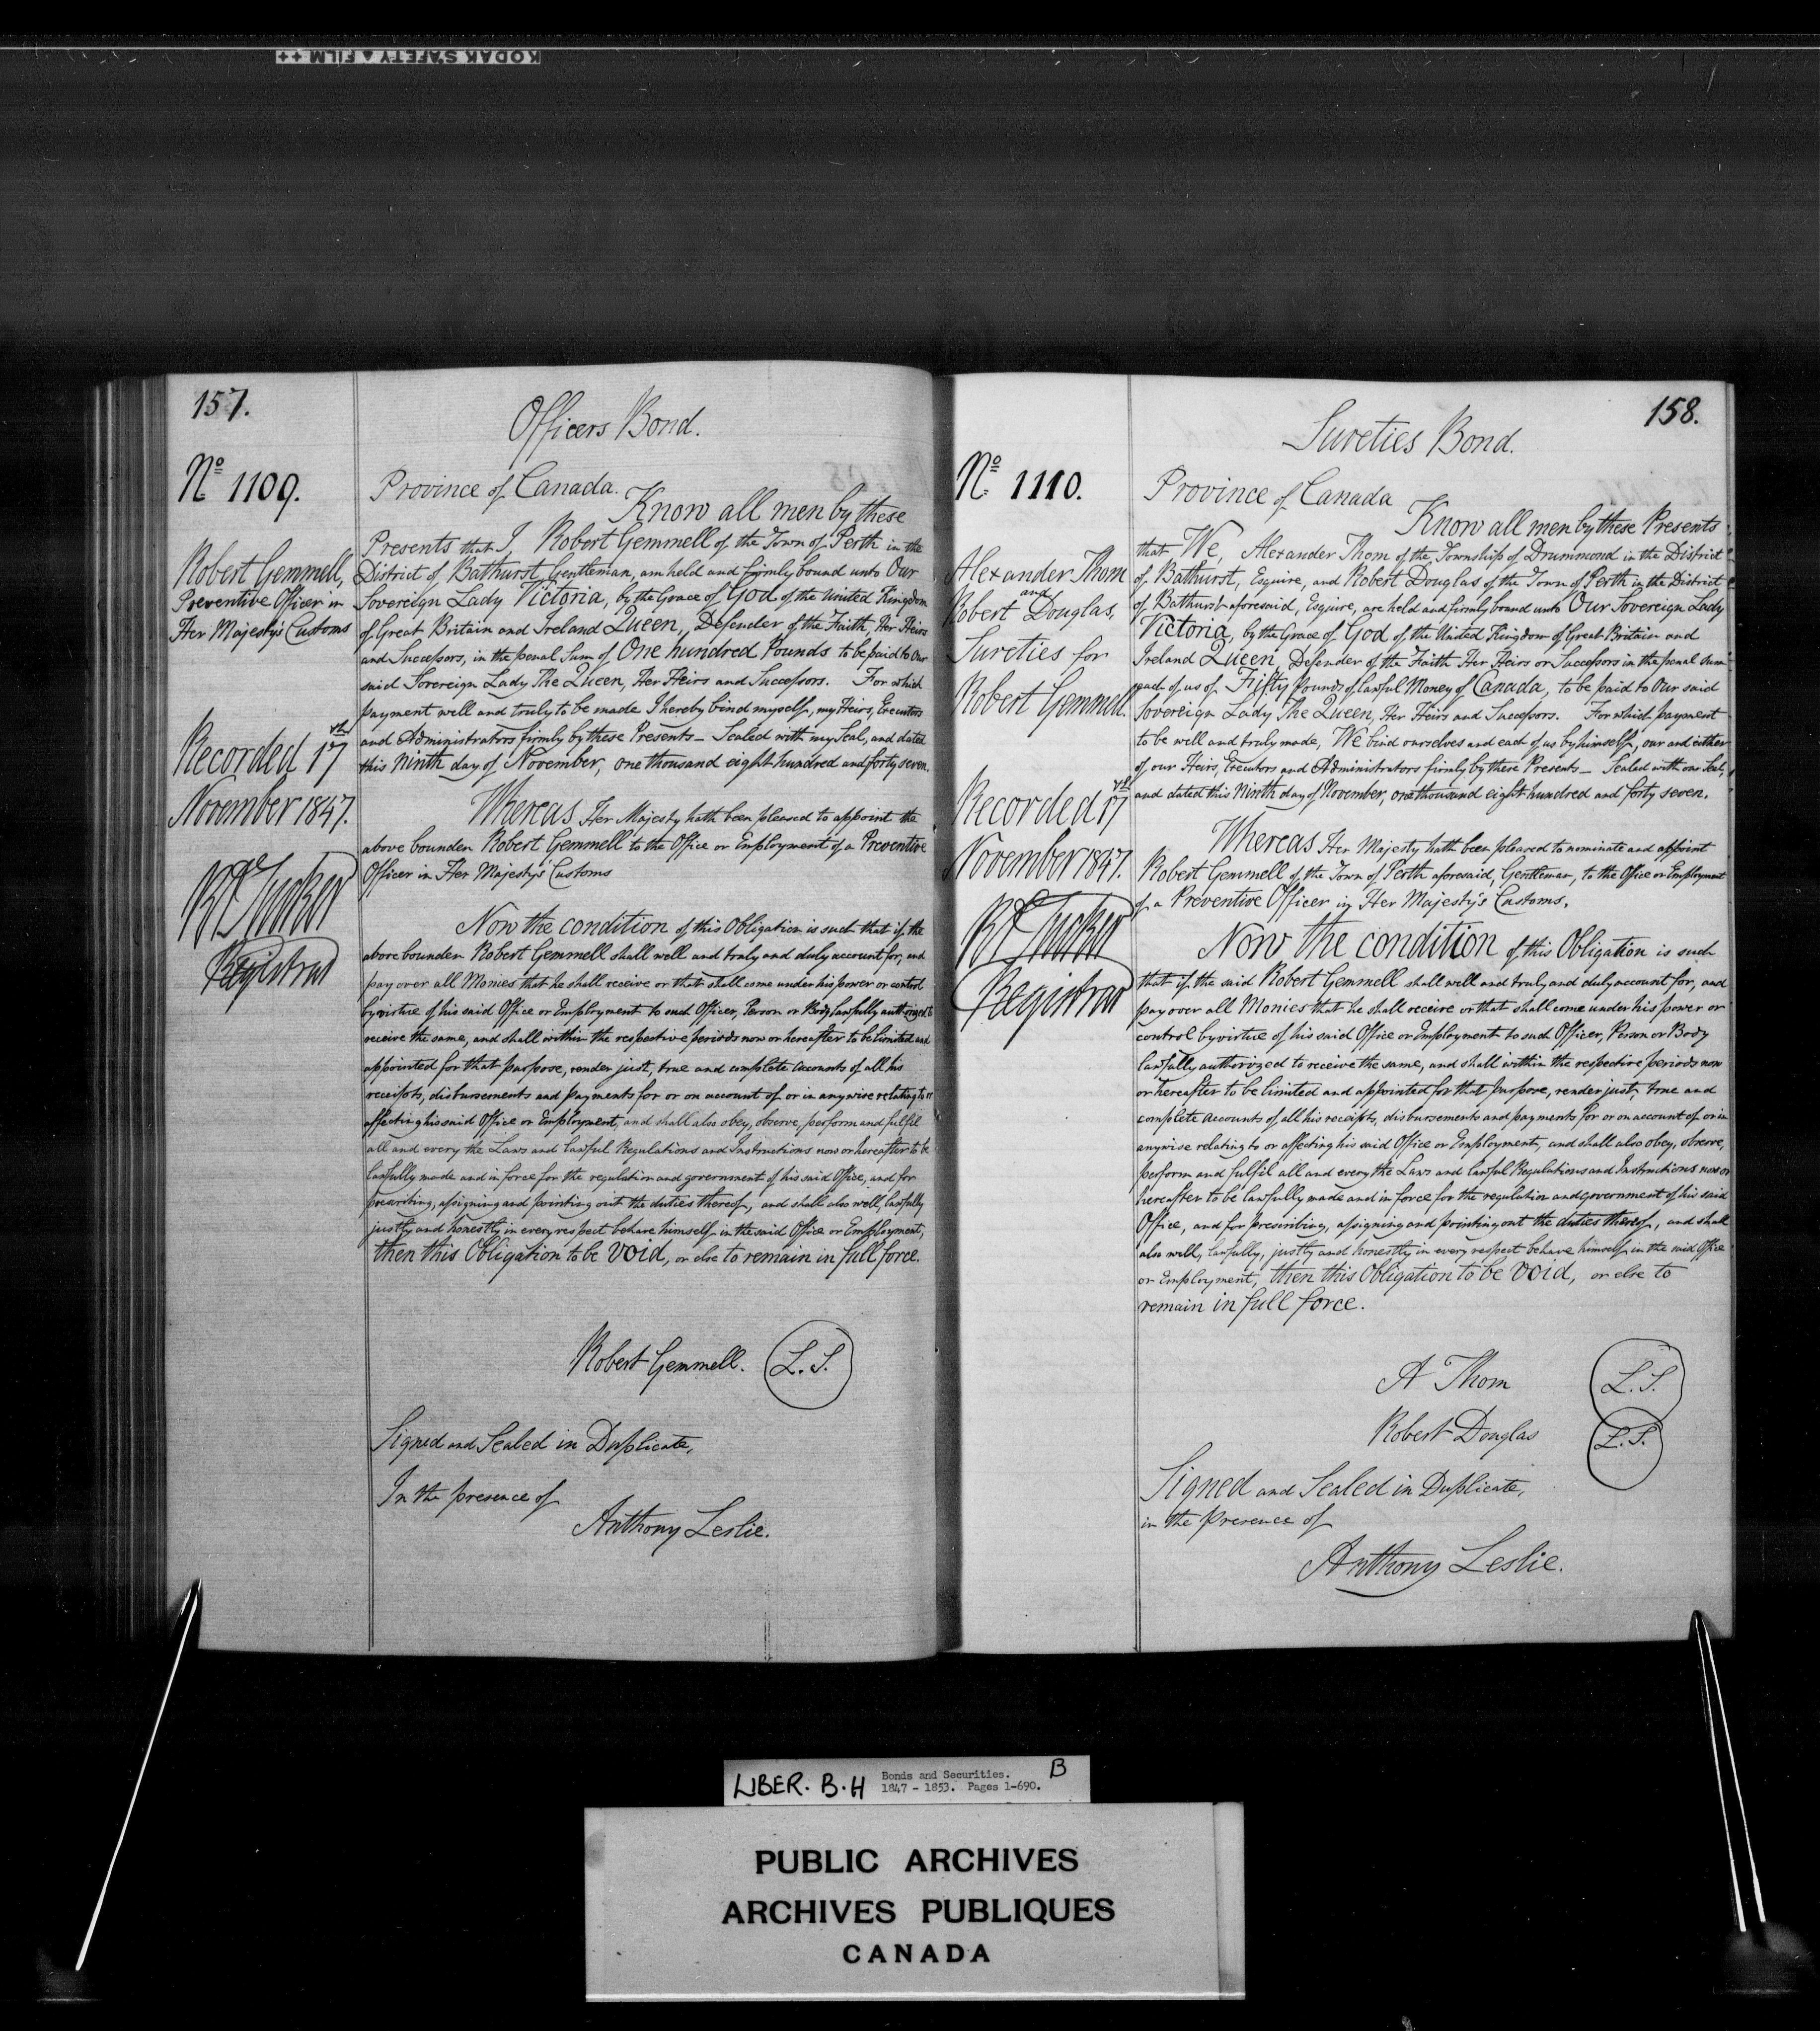 KODAK SAFETY FILM ++
157.
Officers Bond.
No 1109.
Robert Gemmell,
Preventive Officer in
Her Majesty's Customs
Recorded 17th
November 1847.
R A Tucker
Registrar
Province of Canada.
Know all men by these
Presents that I, Robert Gemmell of the Town of Perth in the
District of Bathurst Gentleman, am held and firmly bound unto Our
Sovereign Lady Victoria, by the Grace of God of the United Kingdom
of Great Britain and Ireland Queen, Defender of the Faith, Her Heirs
and Successors, in the penal Sum of One hundred Pounds to be paid to Our
said Sovereign Lady The Queen, Her Heirs and Successors. For which
payment well and truly to be made I hereby bind myself, my Heirs, Executors
and Administrators firmly by these Presents— Sealed with my Seal, and dated
this Ninth day of November, one thousand eight hundred and forty seven.
Whereas Her Majesty hath been pleased to appoint the
above bounden Robert Gemmell to the Office or Employment of a Preventive
Officer in Her Majesty's Customs
Now the condition of this Obligation is such that if the
above bounden Robert Gemmell shall well and truly and duly account for, and
pay over all Monies that he shall receive or that shall come under his power or control
by virtue of his said Office or Employment to such Officer, Person or Body lawfully authorized to
receive the same, and shall within the respective periods now or hereafter to be limited and
appointed for that purpose, render just, true and complete Accounts of all his
receipts, disbursements and payments for or on account of or in anywise relating to or
affecting his said Office or Employment, and shall also obey, observe, perform and fulfil
all and every the Laws and lawful Regulations and Instructions now or hereafter to be
lawfully made and in force for the regulation and government of his said Office, and for
prescribing, assigning and pointing out the duties thereof, and shall also well, lawfully
justly and honestly in every respect behave himself in the said Office or Employment,
then this Obligation to be void, or else to remain in full force.
Robert Gemmell. L.S.
Signed and Sealed in Duplicate,
In the presence of
Anthony Leslie.
158.
Sureties Bond.
No. 1110.
Alexander Thom
and
Robert Douglas,
Sureties for
Robert Gemmell.
Recorded 17th
November 1847.
R A Tucker
Registrar
Province of Canada
Know all men by these Presents
that We, Alexander Thom of the Township of Drummond in the District
of Bathurst, Esquire, and Robert Douglas of the Town of Perth in the District
of Bathurst aforesaid, Esquire, are held and firmly bound unto Our Sovereign Lady
Victoria, by the Grace of God of the United Kingdom of Great Britain and
Ireland Queen, Defender of the Faith Her Heirs or Successors in the penal sum
each of us of Fifty pounds of lawful Money of Canada, to be paid to Our said
Sovereign Lady The Queen, Her Heirs and Successors. For which payment
to be well and truly made, We bind ourselves and each of us by himself, our and either
of our Heirs, Executors and Administrators firmly by these Presents— Sealed with our Seal,
and dated this Ninth day of November, one thousand eight hundred and forty seven.
Whereas Her Majesty hath been pleased to nominate and appoint
Robert Gemmell of the Town of Perth aforesaid, Gentleman, to the Office or Employment
of a Preventive Officer in Her Majesty's Customs.
Now the condition of this Obligation is such
that if the said Robert Gemmell shall well and truly and duly account for, and
pay over all Monies that he shall receive or that shall come under his power or
control by virtue of his said Office or Employment to such Officer, Person or Body
lawfully authorized to receive the same, and shall within the respective periods now
or hereafter to be limited and appointed for that purpose, render just, true and
complete Accounts of all his receipts, disbursements and payments for or on account of or in
anywise relating to or affecting his said Office or Employment, and shall also obey, observe,
perform and fulfil all and every the Laws and lawful Regulations and Instructions now or
hereafter to be lawfully made and in force for the regulation and government of his said
Office, and for prescribing, assigning and pointing out the duties thereof, and shall
also well, lawfully, justly and honestly in every respect behave himself in the said Office
or Employment, then this Obligation to be void, or else to
remain in full force.
A Thom L.S.
Robert Douglas L.S.
Signed and Sealed in Duplicate,
in the Presence of
Anthony Leslie.
LIBER. B.H Bonds and Securities. B
1847 - 1853. Pages 1-690.
PUBLIC ARCHIVES
ARCHIVES PUBLIQUES
CANADA